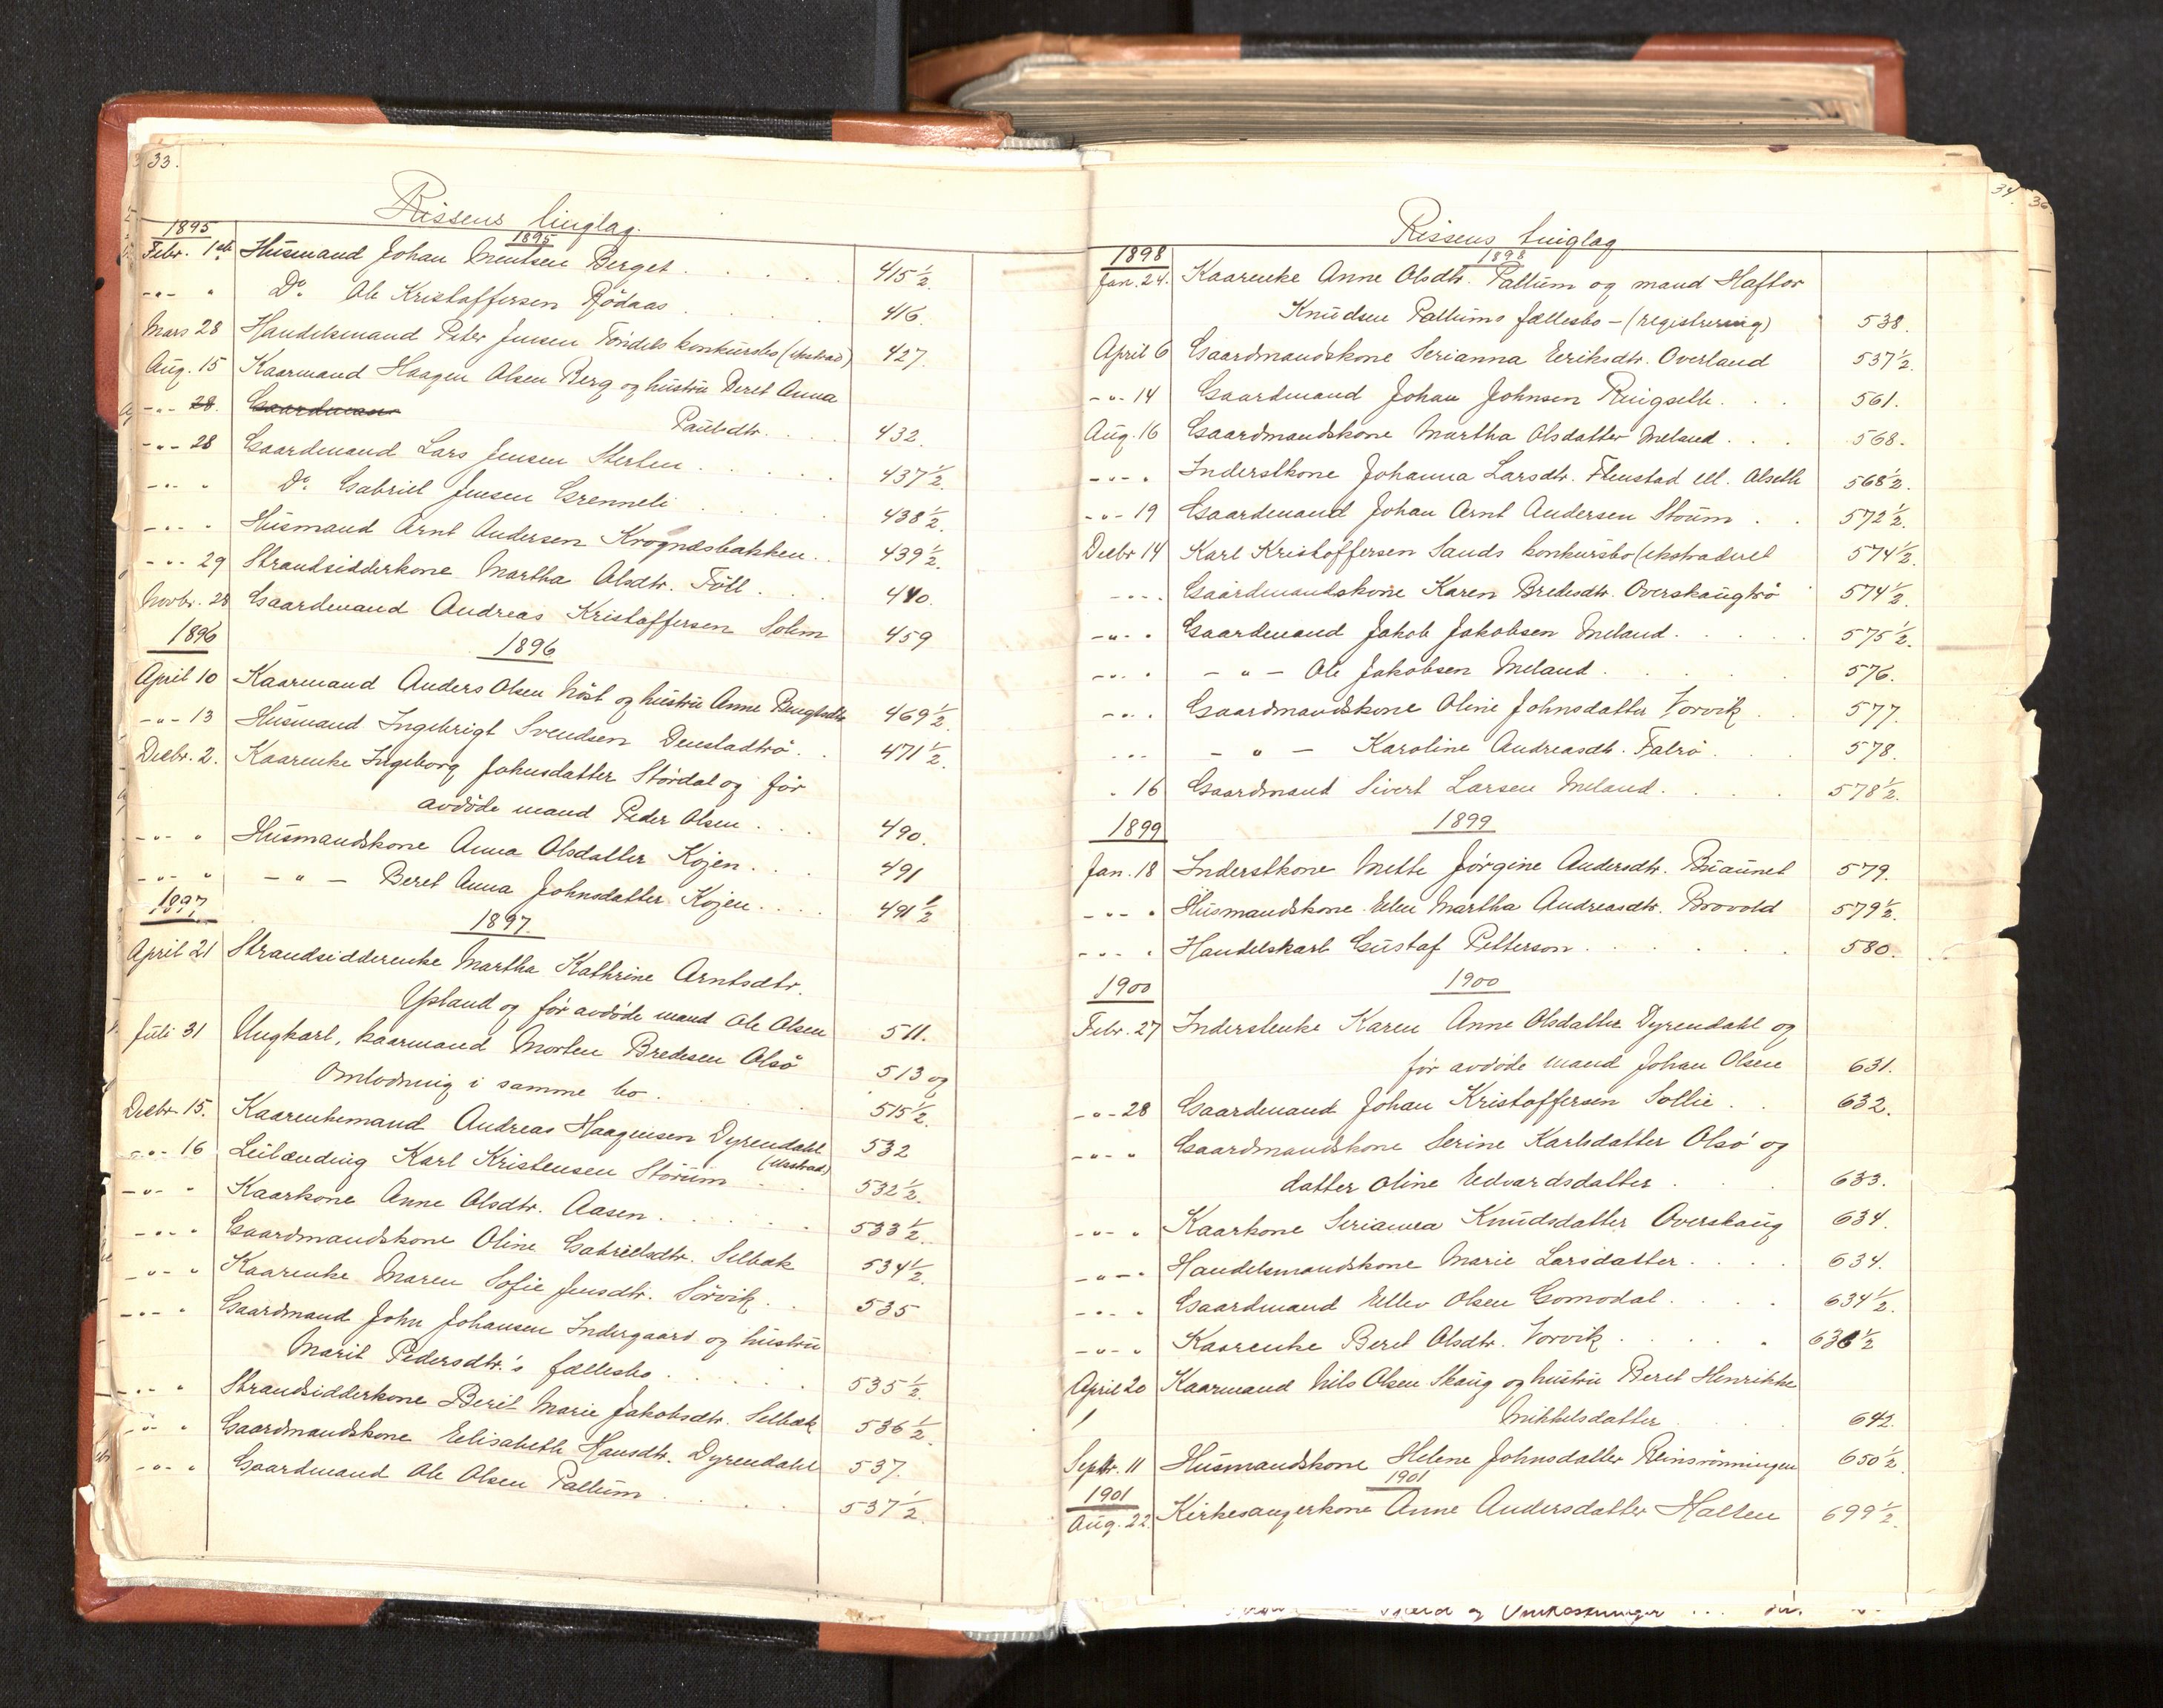 33.
Rissens tinglag.
1895
1895
Febr. 1ste Husmand Johan Berget . . . . 415½.
-"- " Do. Ole Kristoffersen Rödaas . . . . 416.
Mars 28 Handelsmand Peter Jensen Töndels konkursbo (ekstrad) 427.
Aug. 15 Kaarmand Haagen Olsen Berg og hustru Beret Anna
-"- 28. Gaardmand
Paulsdtr. . . . 432.
-"- 28 Gaardmand Lars Jensen Sterten . . . . 437½.
-"- " Do. Gabriel Jensen Grenneli . . . . 438½.
-"- " Husmand Arnt Andersen Krognæsbakken . . 439½.
-"- 29 Strandsidderkone Martha Olsdtr. Föll . . . 440.
Novbr. 28 Gaardmand Andreas Kristoffersen Solem 459
1896
1896
April 10 Kaarmand Anders Olsen Höst og hustru Anne Bengtsdtr 469½.
-"- 13 Husmand Ingebrigt Svendsen Denstadtrö . . 471½.
Decbr. 2. Kaarenke Ingeborg Johnsdatter Stördal og för
avdöde mand Peder Olsen . . . 490.
-"- " Husmandskone Anna Olsdatter Kojen . . . 491
-"- " - " - Beret Anna Johnsdatter Kojen . . . . 491½
1897
1897.
April 21 Strandsidderenke Martha Kathrine Arntsdtr.
Ysland og för avdöde mand Ole Olsen 511.
Juli 31 Ungkarl, kaarmand Morten Bredesen Olsö 513 og
Omlodning i samme bo . . . . 515½.
Decbr. 15. Kaarenkemand Andreas Haagensen Dyrendahl 532
-"- 16 Leilænding Karl Kristensen Störum (ekstrad) . . 532½.
-"- " Kaarkone Anne Olsdtr. Aasen . . . . . 533½.
-"- " Gaardmandskone Oline Gabrielsdtr. Selbæk 534½.
-"- " Kaarenke Maren Sofie Jensdtr. Sörvik . . 535
-"- " Gaardmand John Johansen Indergaard og hustru
Marit Pedersdtr.'s fællesbo . . . . . 535½.
-"- " Strandsidderkone Berit Marie Jakobsdtr. Selbæk 536½.
-"- " Gaardmandskone Elisabeth Hansdtr. Dyrendahl 537.
-"- " Gaardmand Ole Olsen Pallum . . . . 537½.
34.
36
Rissens tinglag
1898
1898
Jan. 24. Kaarenke Anne Olsdtr. Pallum og mand Haftor
Knudsen Pallums fællesbo - (registrering) 538.
April 6 Gaardmandskone Serianna Eeriksdtr. Overland 537½.
-"- 14 Gaardmand Johan Johnsen Ringseth . . . 561.
Aug. 16 Gaardmandskone Martha Olsdatter Meland . . . 568.
-"- " Inderstkone Johanna Larsdtr. Flenstad ell. Alseth 568½.
-"- 19 Gaardmand Johan Arnt Andersen Stoum . . 572½.
Decbr 14 Karl Kristoffersen Sands konkursbo (ekstraderet 574½.
-"- " Gaardmandskone Karen Bredesdtr. Overskaugtrö 574½.
-"- " Gaardmand Jakob Jakobsen Meland . . . . 575½.
-"- " - " - Ole Jakobsen Meland . . . . . 576.
-"- " Gaardmandskone Oline Johnsdatter Vorvik . . 577.
-"- " - " - Karoline Andreasdt. Falrö . . . 578.
" 16 Gaardmand Sivert Larsen Meland . . . . 578½.
1899
1899
Jan. 18 Inderstkone Mette Jörgine Andersdtr. Buaunet 579.
-"- " Husmandskone Elen Martha Andreasdtr. Brovold 579½.
-"- " Handelskarl Gustaf Petterson . . . . . . 580.
1900
1900
Febr. 27 Inderstenke Karen Anne Olsdatter Dyrendahl og
för avdöde mand Johan Olsen 631.
-"- 28 Gaardmand Johan Kristoffersen Sollie . . 632.
-"- " Gaardmandskone Serine Karlsdatter Olsö og
datter Oline Edvardsdatter . . . 633.
-"- " Kaarkone Serianna Knudsdatter Overskaug 634.
-"- " Handelsmandskone Marie Larsdatter . . . . 634.
-"- " Gaardmand Ellev Olsen Gomodal . . . . 634½.
-"- " Kaarenke Beret Olsdtr. Vorvik . . . . . 636½
April 20 Kaarmand Nils Olsen Skaug og hustru Beret Henrikke
Mikkelsdatter . . . . 642.
Septbr. 11 Husmandskone Helene Johnsdatter Reinsrönningen 650½.
1901
1901
Aug. 22. Kirkesangerkone Anne Andersdatter Halten 699½.